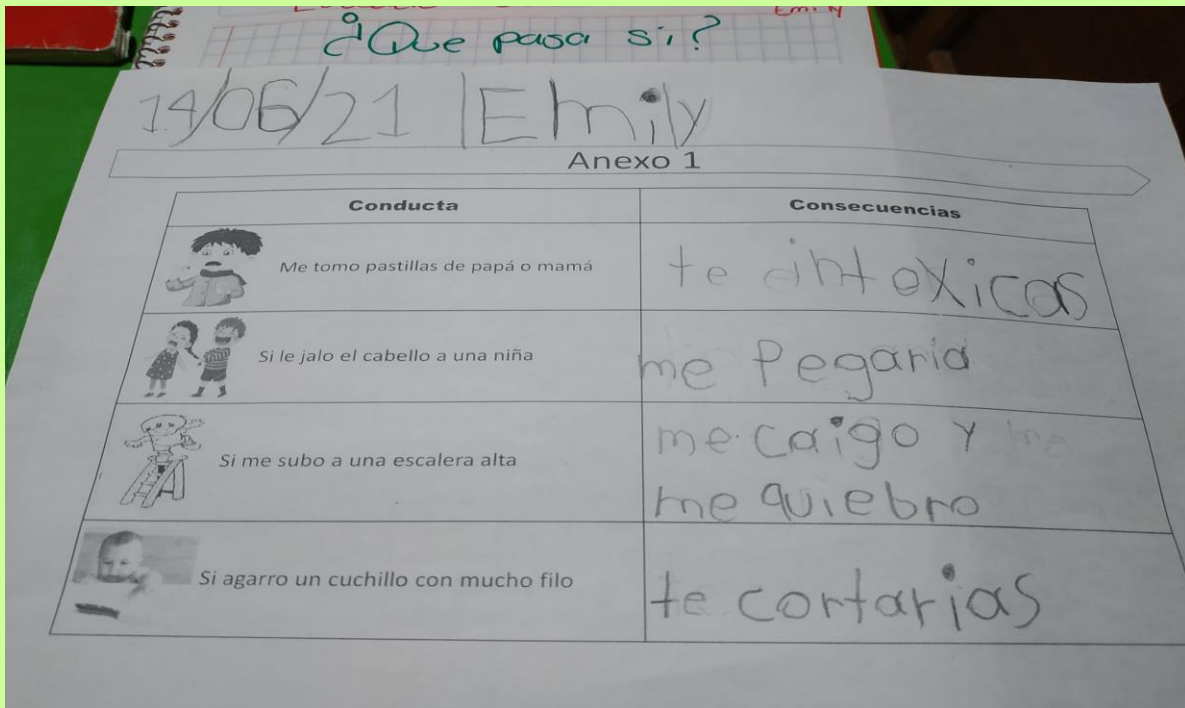 Emily
¿Que pasa si?
14/06/21 Emily
Anexo 1
Conducta
Consecuencias
Me tomo pastillas de papá o mamá
te intoxicas
Si le jalo el cabello a una niña
me Pegaria
Si me subo a una escalera alta
me caigo y me
me quiebro
Si agarro un cuchillo con mucho filo
te cortarias